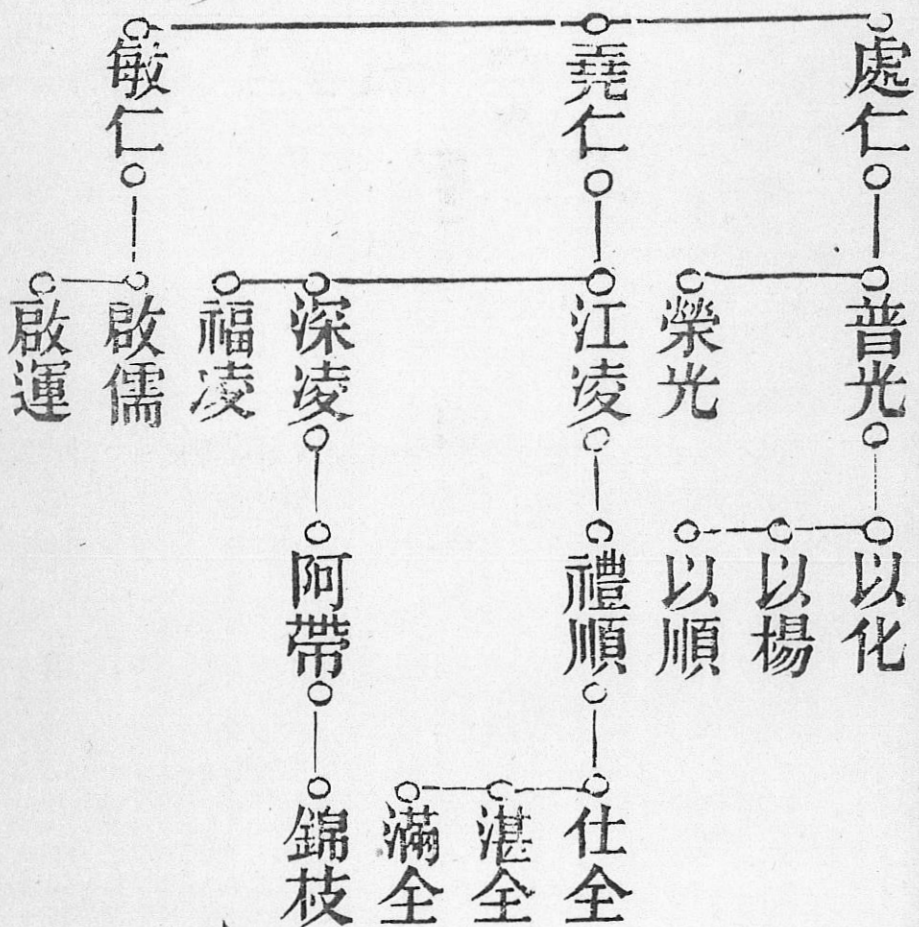 處仁
堯仁
敏仁
普光
榮光
江凌
深凌
福凌
啟儒
啟運
以化
以楊
以順
禮順
阿帶
仕全
湛全
滿全
錦枝